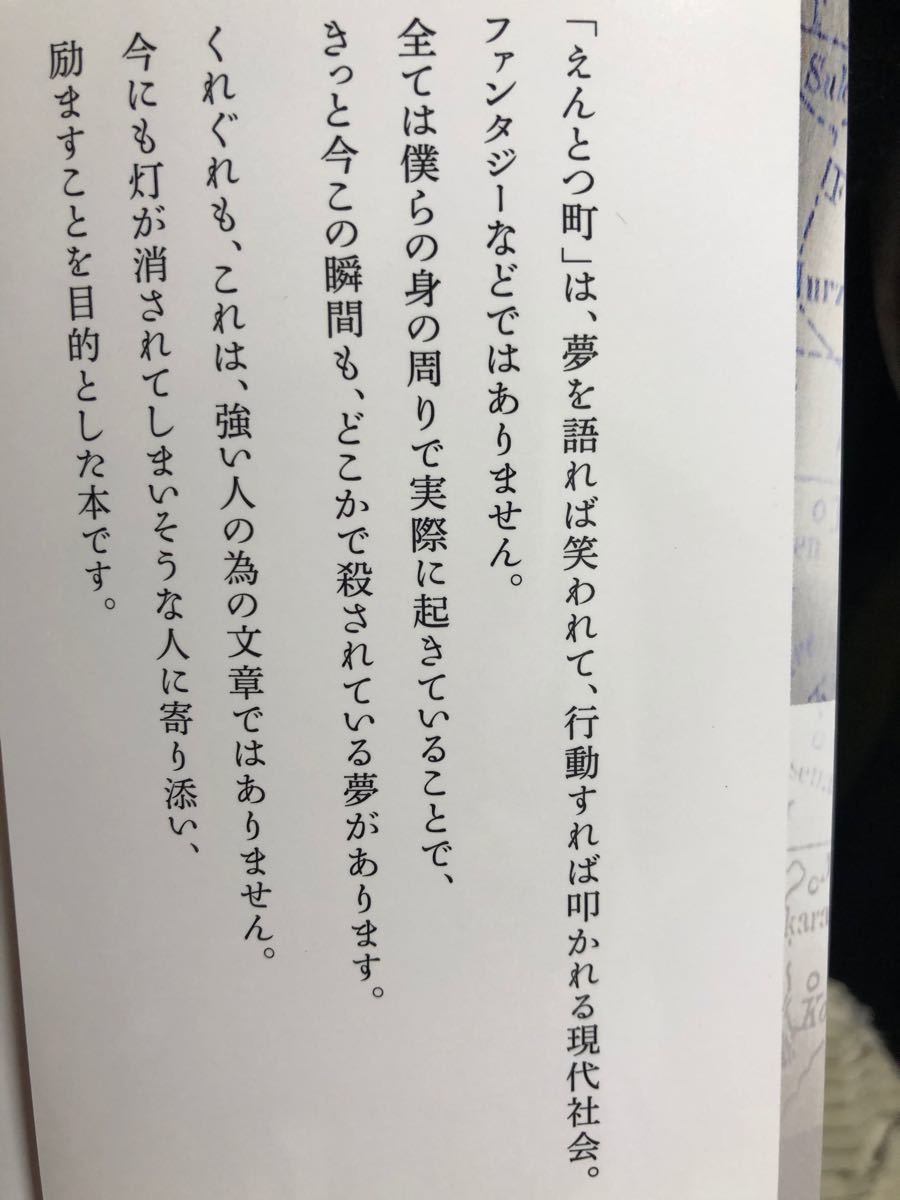 「えんとつ町」は、夢を語れば笑われて、行動すれば叩かれる現代社会。
ファンタジーなどではありません。
全ては僕らの身の周りで実際に起きていることで、
きっと今この瞬間も、どこかで殺されている夢があります。
くれぐれも、これは、強い人の為の文章ではありません。
今にも灯が消されてしまいそうな人に寄り添い、
励ますことを目的とした本です。